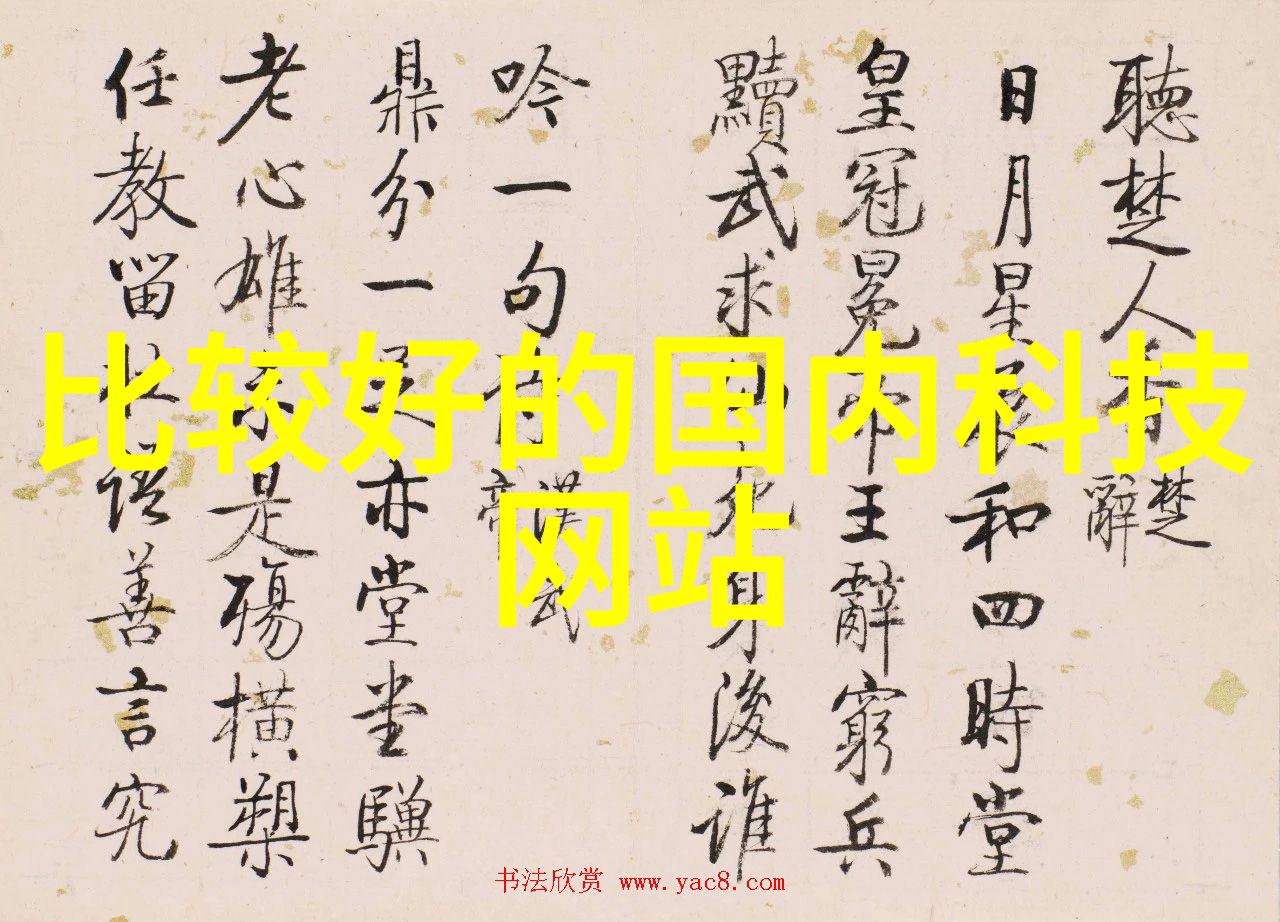 聽楚人
楚辭
日月星辰和四時堂
皇冠冕帝王辭窮兵
黷武求仙身後誰
吟一句
漢武帝
鼎分一足亦堂堂驥
老心雄未是殤橫槊
任教留善言究
比较好的国内科技
网站
书法欣赏 www.yac8.com